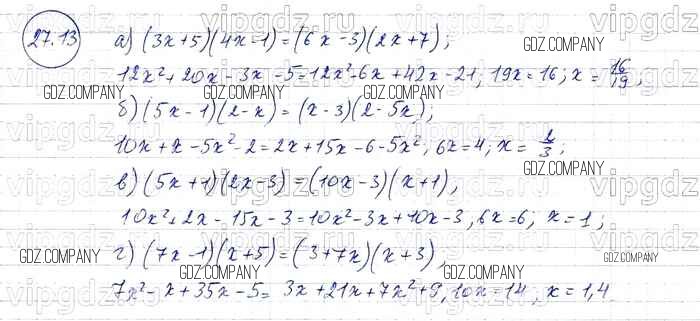 27.13
а) (3x+5)(4x-1)=(6x-3)(2x+7);
12x²+20x-3x-5=12x²-6x+42x-21; 19x=16; x=16/19;
б) (5x-1)(2-x)=(x-3)(2-5x);
10x+x-5x²-2=2x+15x-6-5x²; 6x=4; x=2/3;
в) (5x+1)(2x-3)=(10x-3)(x+1),
10x²+2x-15x-3=10x²-3x+10x-3, 6x=6; x=1;
г) (7x-1)(x+5)=(3+7x)(x+3),
7x²-x+35x-5=3x+21x+7x²+9, 10x=14, x=1,4
GDZ.COMPANY
GDZ.COMPANY
GDZ.COMPANY
GDZ.COMPANY
GDZ.COMPANY
GDZ.COMPANY
GDZ.COMPANY
GDZ.COMPANY
vipgdz.ru